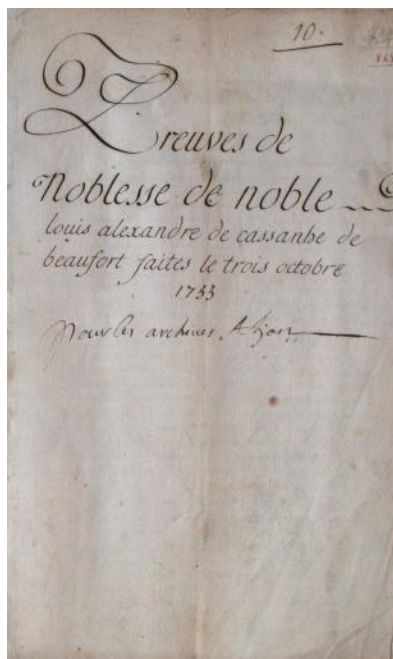 10.
Preuves de
Noblesse de noble
louis alexandre de cassanhe de
beaufort faites le trois octobre
1733
pour les archives A lyon